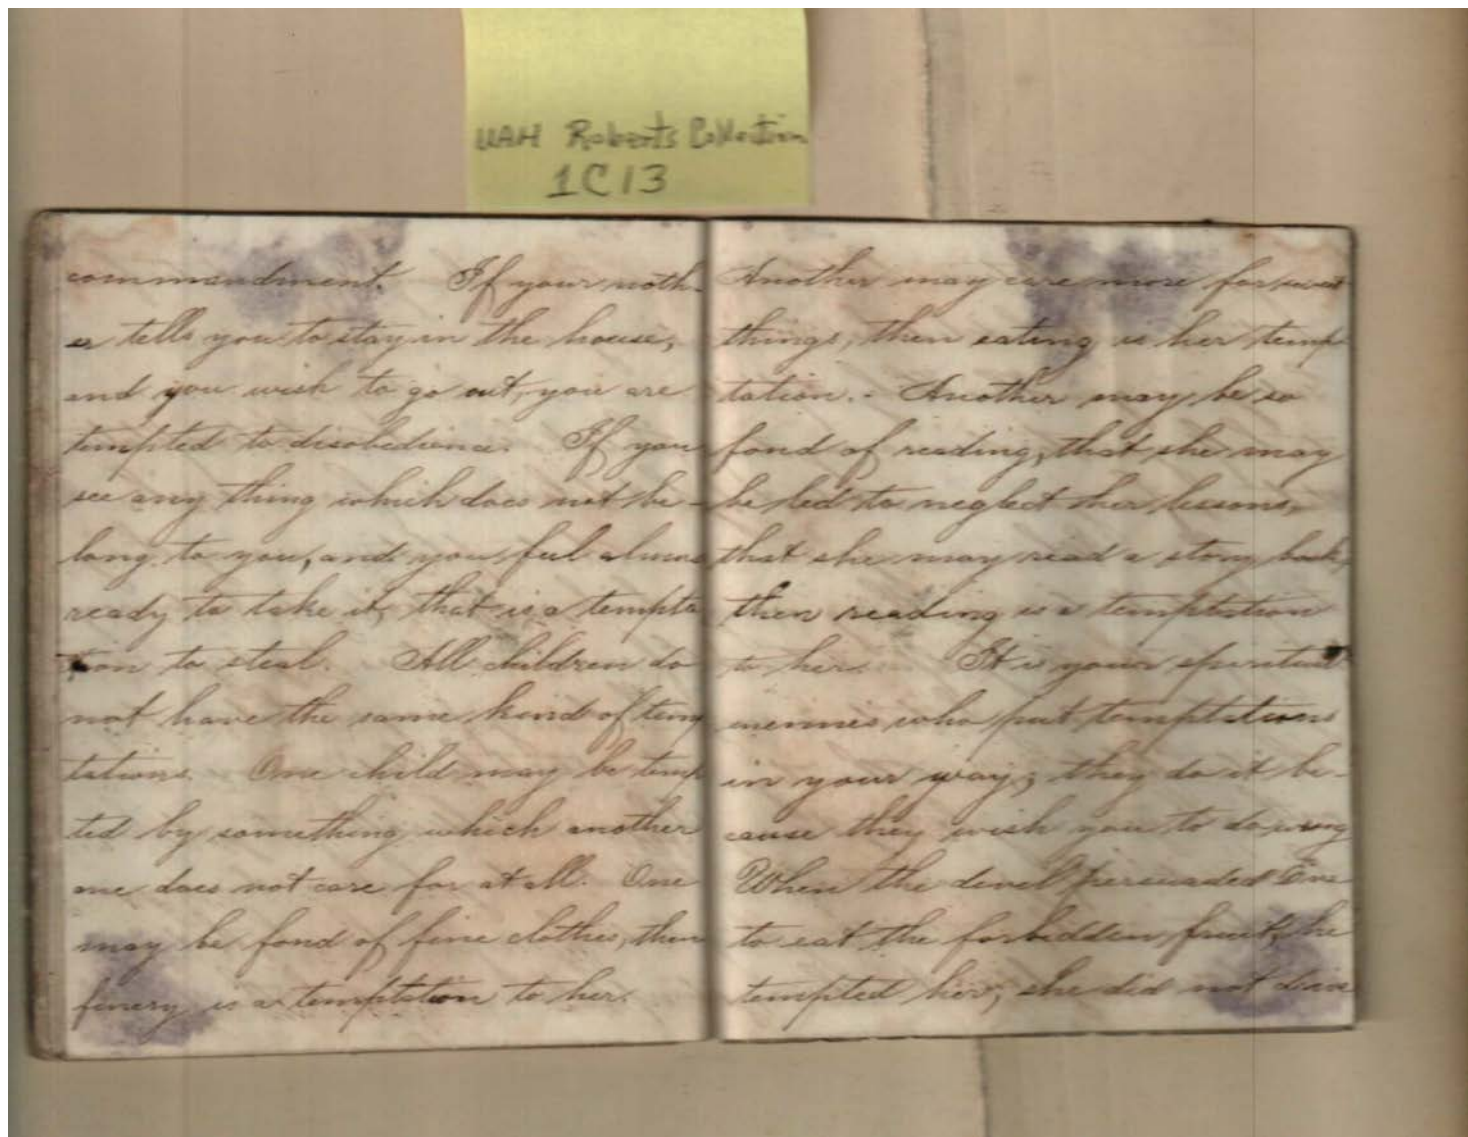 UAH Roberts Collection
1C13
commandment. If your moth-
er tells you to stay in the house,
and you wish to go out, you are
tempted to disobedience. If you
see any thing which does not be-
long to you, and you feel almost
ready to take it, that is a tempta
tion to steal. All children do
not have the same kind of temp
tations. One child may be temp
ted by something which another
one does not care for at all. One
may be fond of fine clothes, then
finery is a temptation to her.
Another may care more for sweet
things, then eating is her temp-
tation.- Another may be so
fond of reading, that she may
be led to neglect her lessons,
that she may read a story book,
then reading is a temptation
to her. It is your spiritual
enemies who put temptations
in your way; they do it be-
cause they wish you to do wrong
When the devil persuaded Eve
to eat the forbidden fruit, he
tempted her; she did not